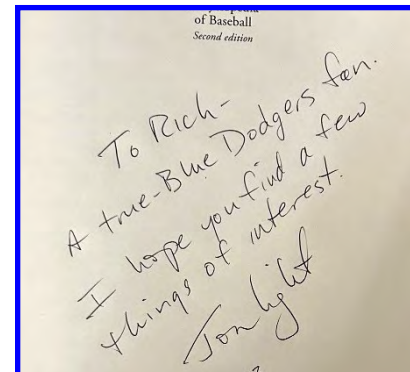 of Baseball
Second edition
To Rich-
A true-Blue Dodgers fan.
I hope you find a few
things of interest.
Jon Light